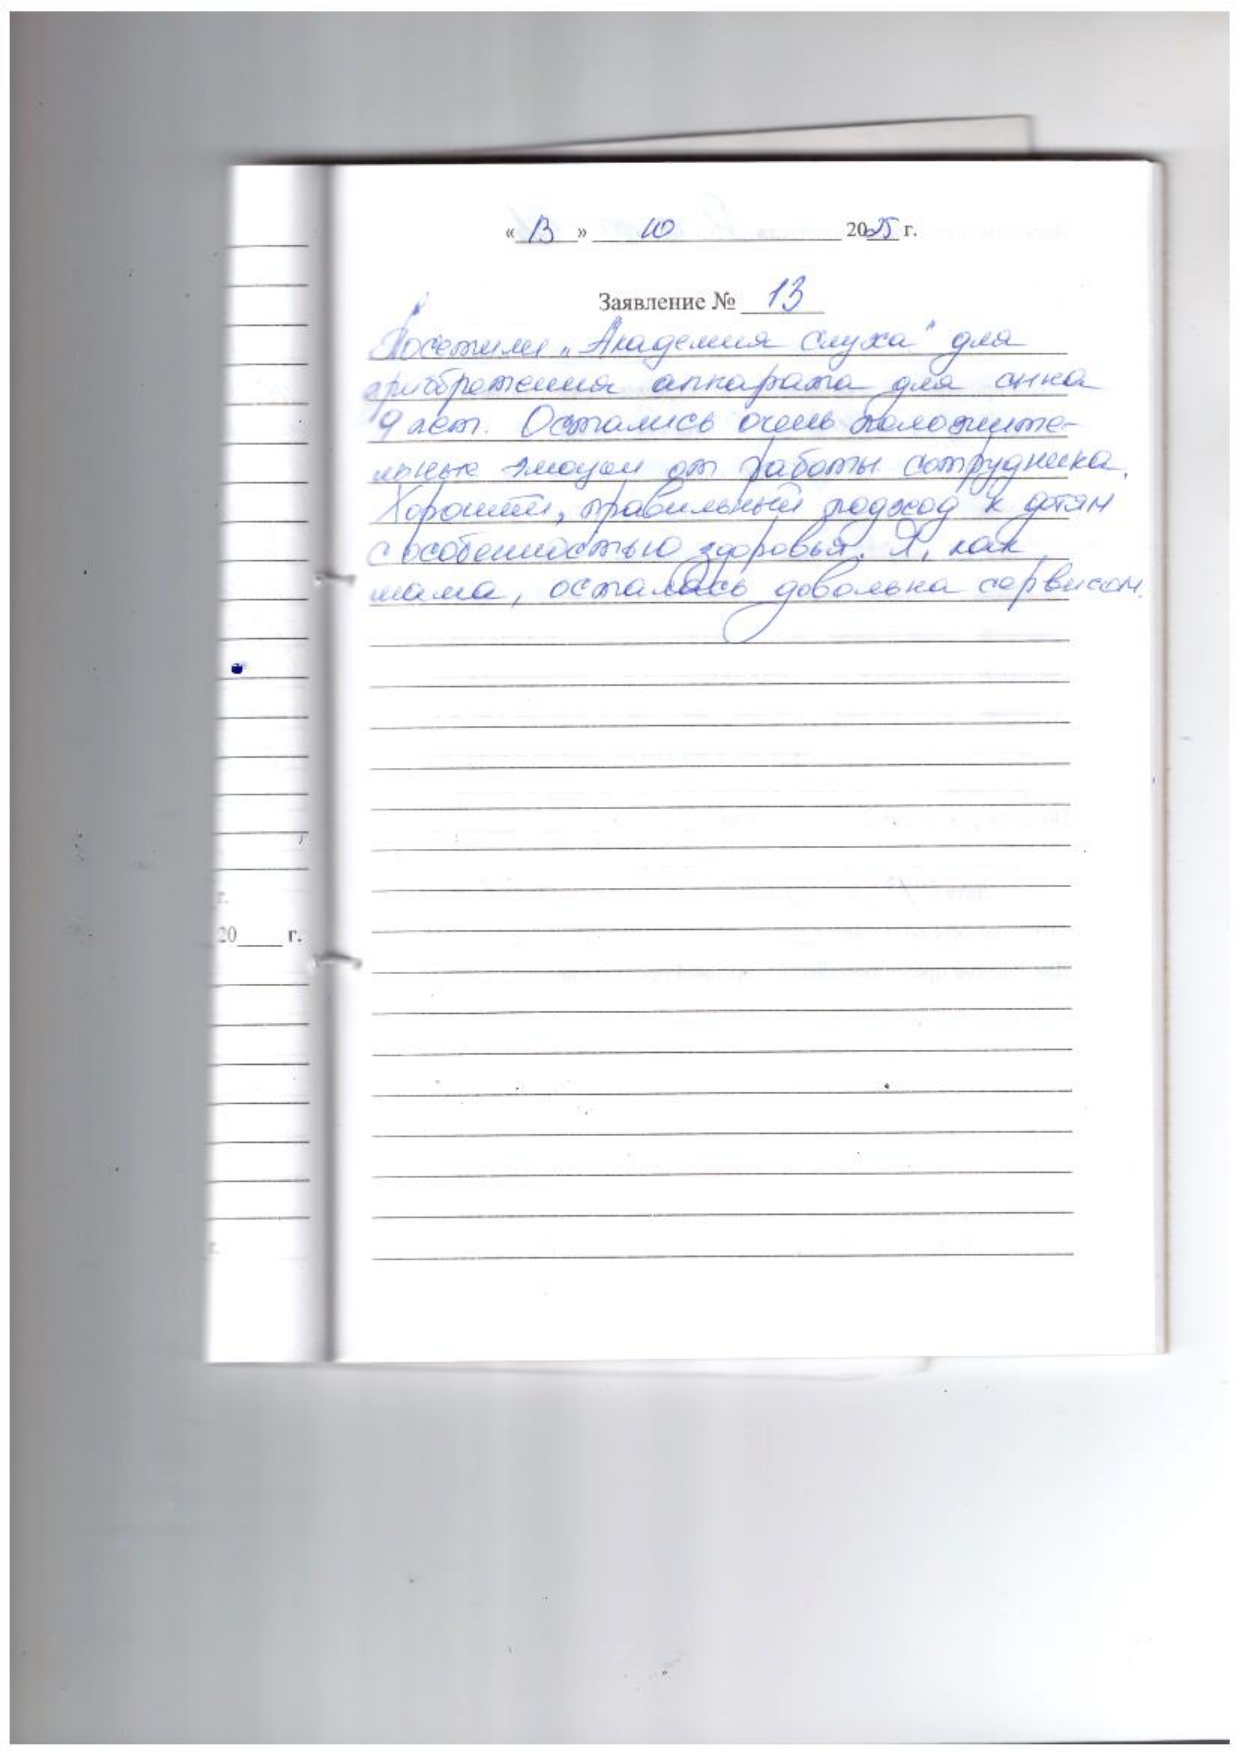 «13» 10 2025 г.
Заявление № 13
Посетили „Академия слуха" для
приобретения аппарата для сынка
9 лет. Остались очень положите-
льные эмоции от работы сотрудника.
Хороший, правильный подход к детям
с особенностью здоровья. Я, как
мама, осталась довольна сервисом.
г.
20____ г.